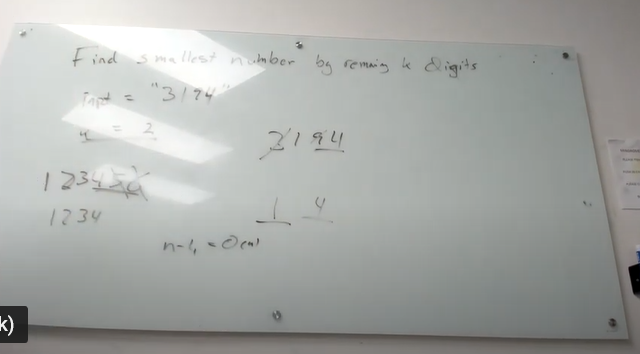 Find smallest number by remaing k Digits
input = "3194"
k = 2
3194
123456
1234
1 4
n-k = O(n)
k)